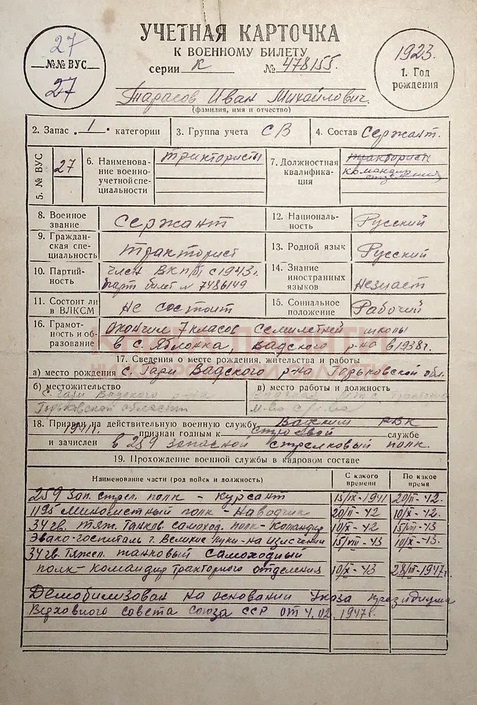 27
№№ ВУС
27
УЧЕТНАЯ КАРТОЧКА
К ВОЕННОМУ БИЛЕТУ
серии К №478155.
1923.
1. Год
рождения
Тарасов Иван Михайлович.
(фамилия, имя и отчество)
2. Запас 1 категории
3. Группа учета СВ
4. Состав Сержант.
5. № ВУС
27
6. Наименование военно-учетной специальности
трактористы
7. Должностная квалификация
командир
8. Военное звание
Сержант
12. Национальность
Русский
9. Гражданская специальность
тракторист
13. Родной язык
Русский
10. Партийность
член ВКП/б с 1943 г.
парт билет № 7486149
14. Знание иностранных языков
Незнает
11. Состоит ли в ВЛКСМ
не состоит
15. Социальное положение
Рабочий
16. Грамотность и образование
окончил 7 класов семилетней школы
в с. Вадского р-на в 1938 г.
17. Сведения о месте рождения, жительства и работы
а) место рождения с. Гари Вадского р-на Горьковской обл.
б) местожительство с Гари Вадского
Горьковской области
в) место работы и должность
18. Призван на действительную военную службу Вадским РВК
1941 г. признан годным к строевой службе
и зачислен в 259 запасной стрелковый полк.
19. Прохождение военной службы в кадровом составе
Наименование части (род войск и должность)
С какого времени
По какое время
259 зап. стрел. полк - курсант 15/IX-1941 20/II-42.
1195 Минометный полк - Наводчик 20/II-42 10/X-42.
34 гв. тяж. танков самоход. полк - командир 10/X-42 15/VII-43
Эвако-госпиталь г. Великие Луки - на излечении 15/VII-43 10/X-43.
34 гв. тяжел. танковый самоходный
полк - командир тракторного отделения 10/X-43 28/III-1947 г.
Демобилизован на основании Указа Президиума
Верховного совета союза ССР от 4.02.1947 г.